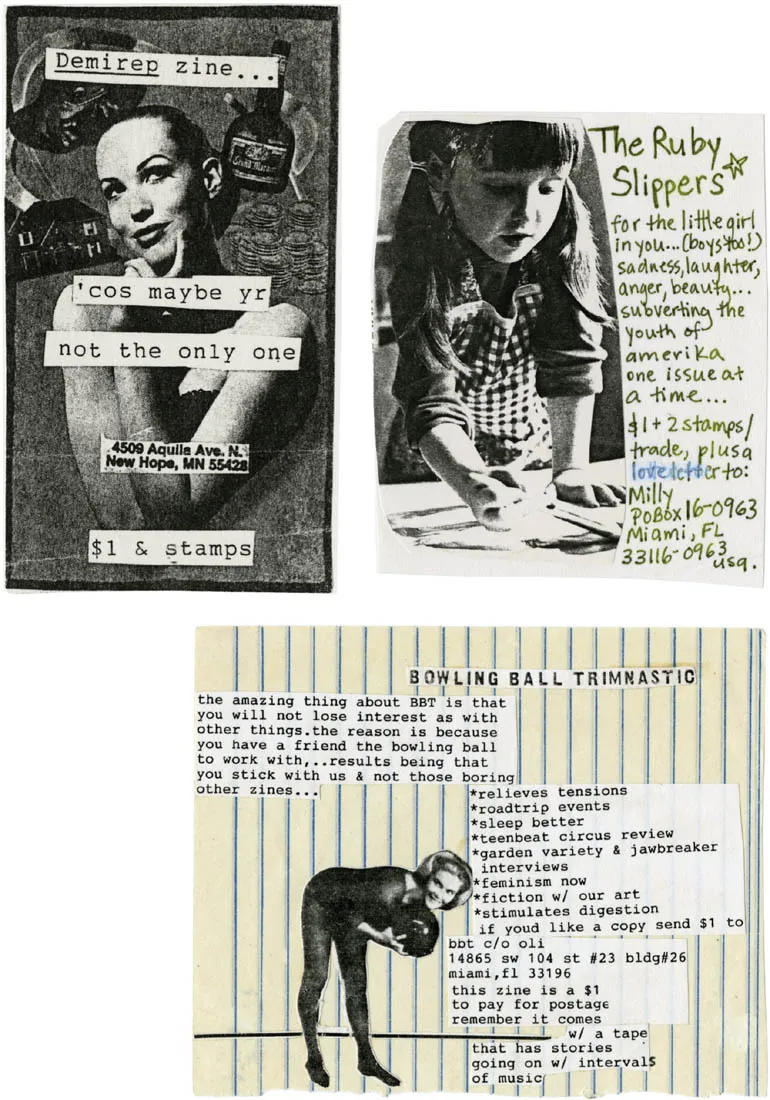 Demirep zine...
Grand Marnier
'cos maybe yr
not the only one
4509 Aquila Ave. N.
New Hope, MN 55428
$1 & stamps
The Ruby
Slippers
for the little girl
in you...(boys too!)
sadness, laughter,
anger, beauty...
subverting the
youth of
amerika
one issue at
a time...
$1 + 2 stamps/
trade, plus a
love letter to:
Milly
PO Box 16-0963
Miami, FL
33116-0963
usa.
BOWLING BALL TRIMNASTIC
the amazing thing about BBT is that
you will not lose interest as with
other things.the reason is because
you have a friend the bowling ball
to work with,..results being that
you stick with us & not those boring
other zines...
*relieves tensions
*roadtrip events
*sleep better
*teenbeat circus review
*garden variety & jawbreaker
interviews
*feminism now
*fiction w/ our art
*stimulates digestion
if youd like a copy send $1 to
bbt c/o oli
14865 sw 104 st #23 bldg#26
miami,fl 33196
this zine is a $1
to pay for postage
remember it comes
w/ a tape
that has stories
going on w/ intervals
of music